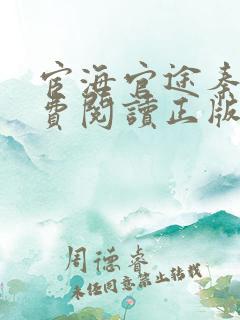 官海官途秦
費閱讀正版
周德睿
未经同意禁止转载